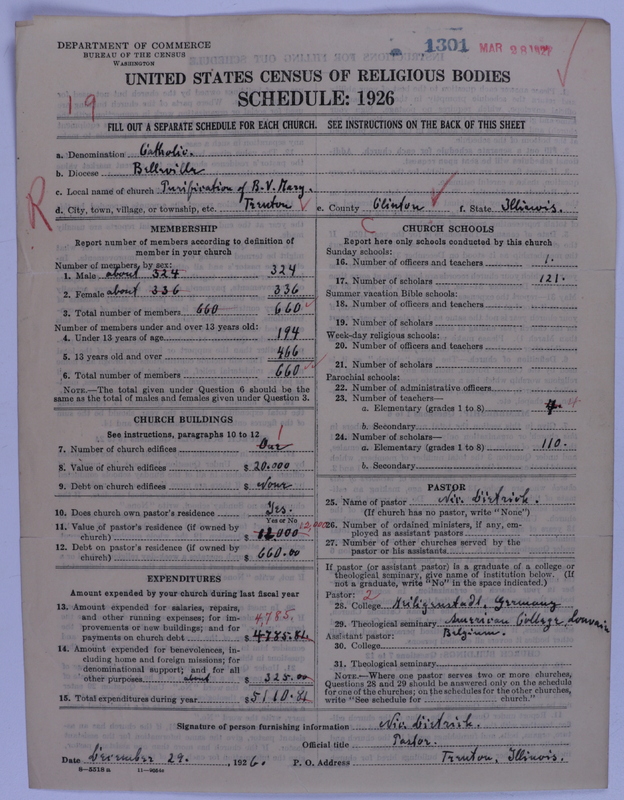 DEPARTMENT OF COMMERCE
BUREAU OF THE CENSUS
WASHINGTON
1301 MAR 28 1927
UNITED STATES CENSUS OF RELIGIOUS BODIES
SCHEDULE: 1926
19
FILL OUT A SEPARATE SCHEDULE FOR EACH CHURCH. SEE INSTRUCTIONS ON THE BACK OF THIS SHEET
a. Denomination Catholic.
b. Diocese Belleville
c. Local name of church Purification of B. V. Mary.
R
d. City, town, village, or township, etc. Trenton e. County Clinton f. State Illinois.
MEMBERSHIP
Report number of members according to definition of member in your church
Number of members, by sex:
1. Male about 324 324
2. Female about 336 336
3. Total number of members 660 660
Number of members under and over 13 years old:
4. Under 13 years of age 194
5. 13 years old and over 466
6. Total number of members 660
NOTE.—The total given under Question 6 should be
same as the total of males and females given under Question 3.
CHURCH BUILDINGS
See instructions, paragraphs 10 to 12
7. Number of church edifices One 1
8. Value of church edifices $ 20.000
9. Debt on church edifices $ None
10. Does church own pastor's residence? Yes.
Yes or No
11. Value of pastor's residence (if owned by
church) $ 12000 12,000
12. Debt on pastor's residence (if owned by
church) $ 660.00
EXPENDITURES
Amount expended by your church during last fiscal year
13. Amount expended for salaries, repairs,
and other running expenses; for im-
provements or new buildings; and for
payments on church debt $ 4785.84 4785.
14. Amount expended for benevolences, in-
cluding home and foreign missions; for
denominational support; and for all
other purposes about $ 325.00
15. Total expenditures during year $ 5110.84
C
CHURCH SCHOOLS
Report here only schools conducted by this church
Sunday schools:
16. Number of officers and teachers 1.
17. Number of scholars 121.
Summer vacation Bible schools:
18. Number of officers and teachers
19. Number of scholars
Week-day religious schools:
20. Number of officers and teachers
21. Number of scholars
Parochial schools:
22. Number of administrative officers
23. Number of teachers—
a. Elementary (grades 1 to 8) 4
b. Secondary
24. Number of scholars—
a. Elementary (grades 1 to 8) 110.
b. Secondary
PASTOR
25. Name of pastor Nic. Dietrich.
(If church has no pastor, write "None")
26. Number of ordained ministers, if any, em-
ployed as assistant pastors
27. Number of other churches served by the
pastor or his assistants
If pastor (or assistant pastor) is a graduate of a college or
theological seminary, give name of institution below. (If
not a graduate, write "No" in the space indicated.)
Pastor: 2
28. College Heiligenstadt, Germany
29. Theological seminary American College, Louvain
Assistant pastor: Belgium.
30. College
31. Theological seminary
NOTE.—Where one pastor serves two or more churches,
Questions 28 and 29 should be answered only on the schedule
for one of the churches; on the schedules for the other churches,
write "See schedule for church."
Signature of person furnishing information Nic. Dietrich.
Official title Pastor.
Date December 29. , 1926. P. O. Address Trenton, Illinois.
8—5518a